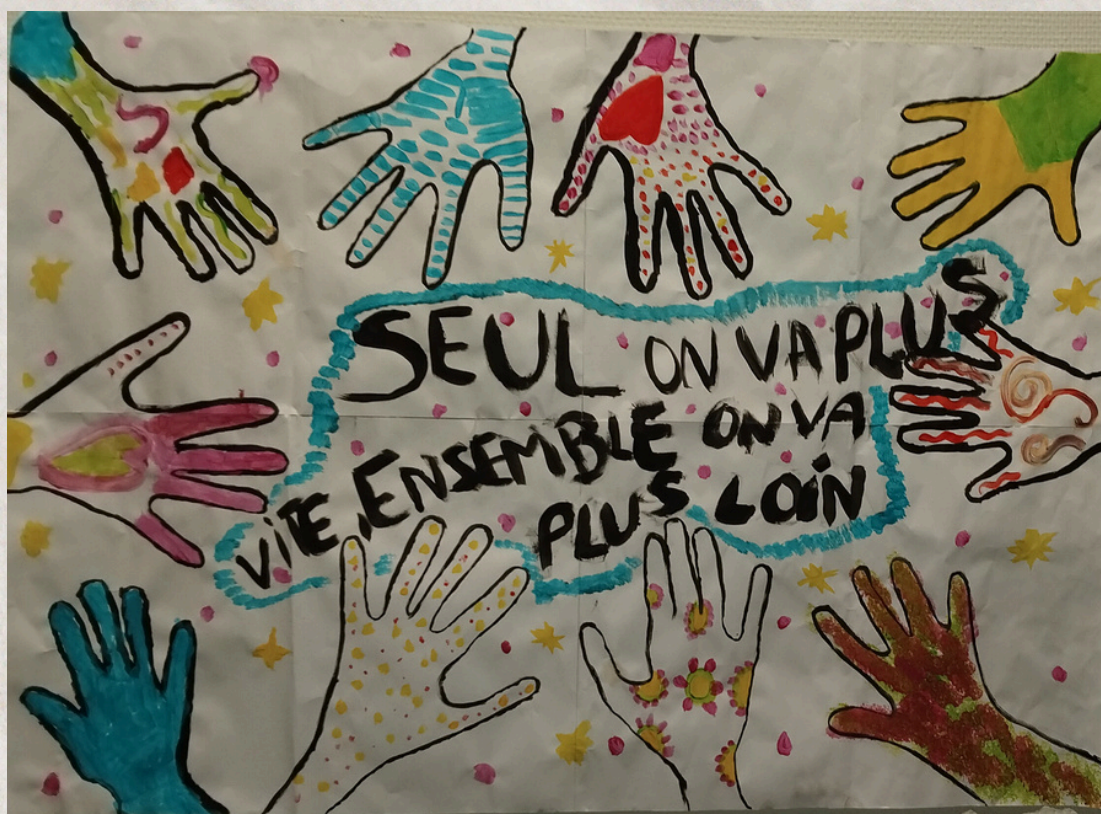 SEUL ON VA PLUS
VITE, ENSEMBLE ON VA
PLUS LOIN